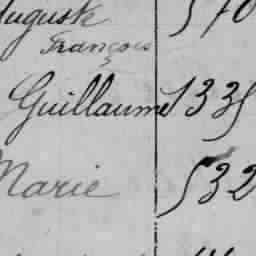 Auguste 570
François
Guillaume 1335
Marie 532